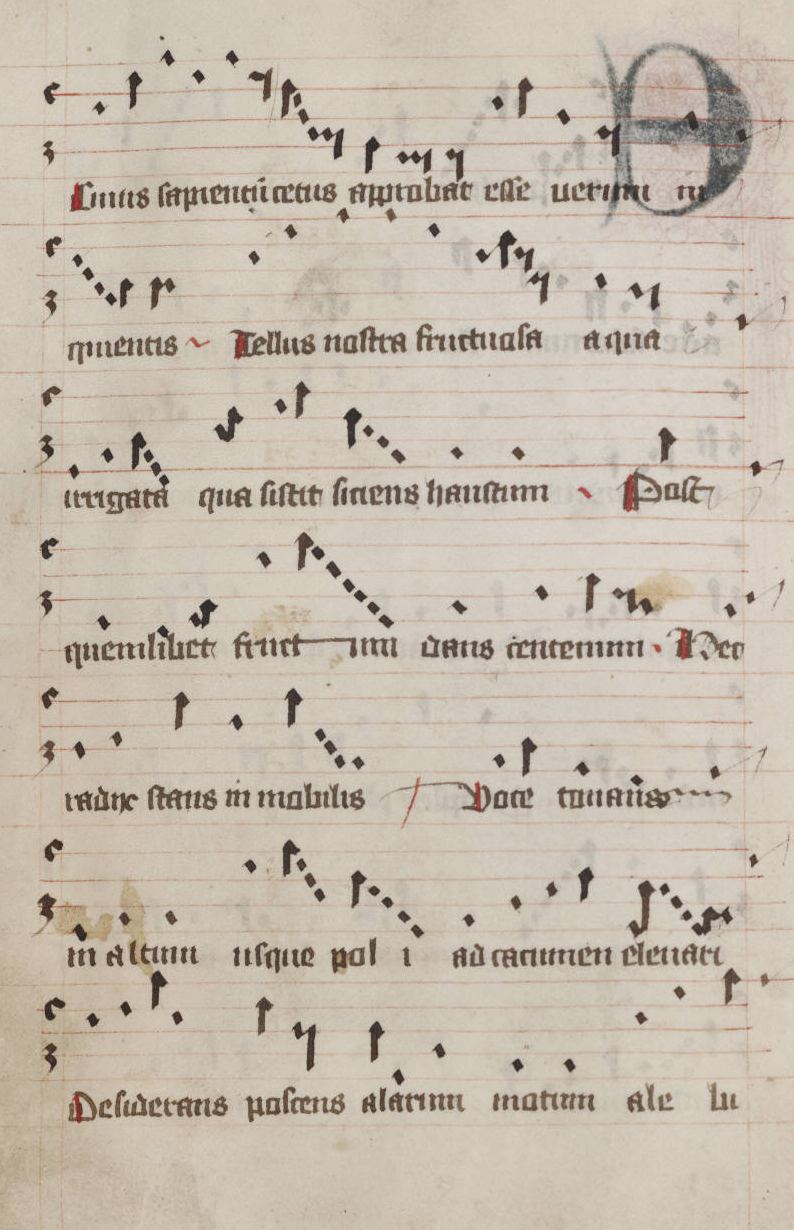 Cuius sapientū cetus approbat esse uerum in
quientis Tellus nostra fructuosa aqua
irrigata qua sistit sitiens haustum Post
quemlibet fruct um dans centenum Nec
radix stans in mobilis Voce tonans
in altum usque pol i ad cacumen eleuari
Desiderans poscens alarum motum ale lu